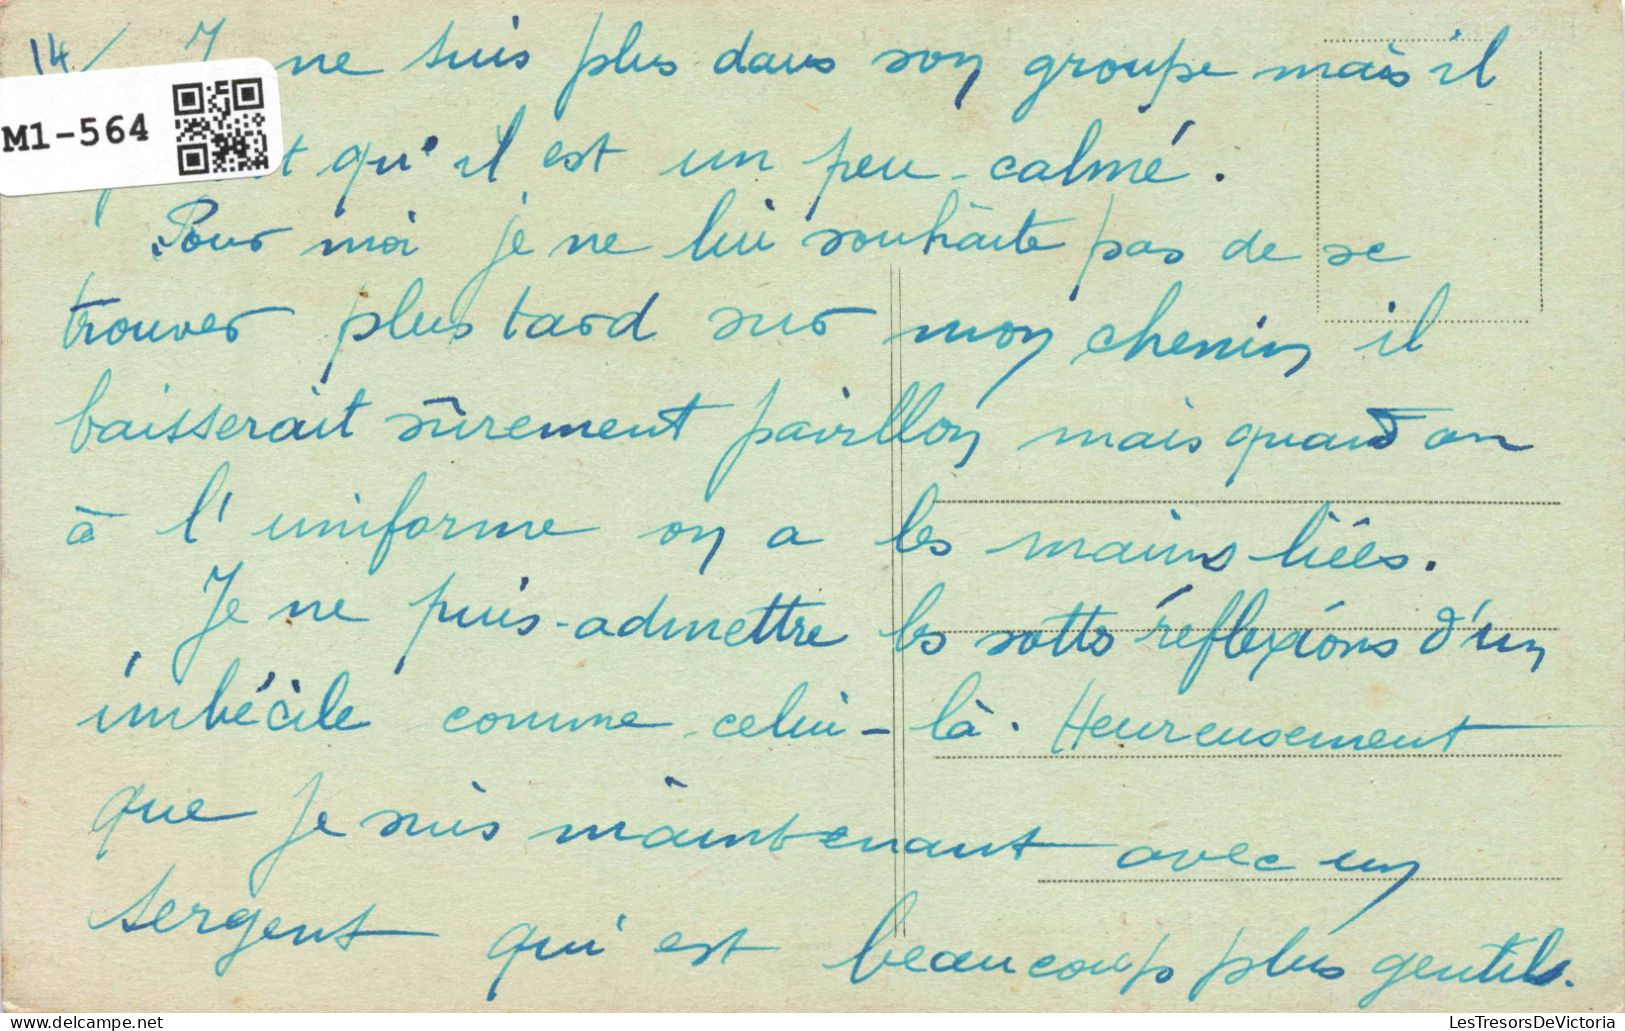 14/ Je ne suis plus dans son groupe mais il
M1-564
qu'il est un peu calmé.
Pour moi je ne lui souhaite pas de se
trouver plus tard sur mon chemin il
baisserait sûrement pavillon mais quand on
à l'uniforme on a les mains liées.
Je ne puis admettre les sotts réflexions d'un
imbécile comme celui-là. Heureusement
que je suis maintenant avec un
sergent qui est beaucoup plus gentil.
LesTresorsDeVictoria